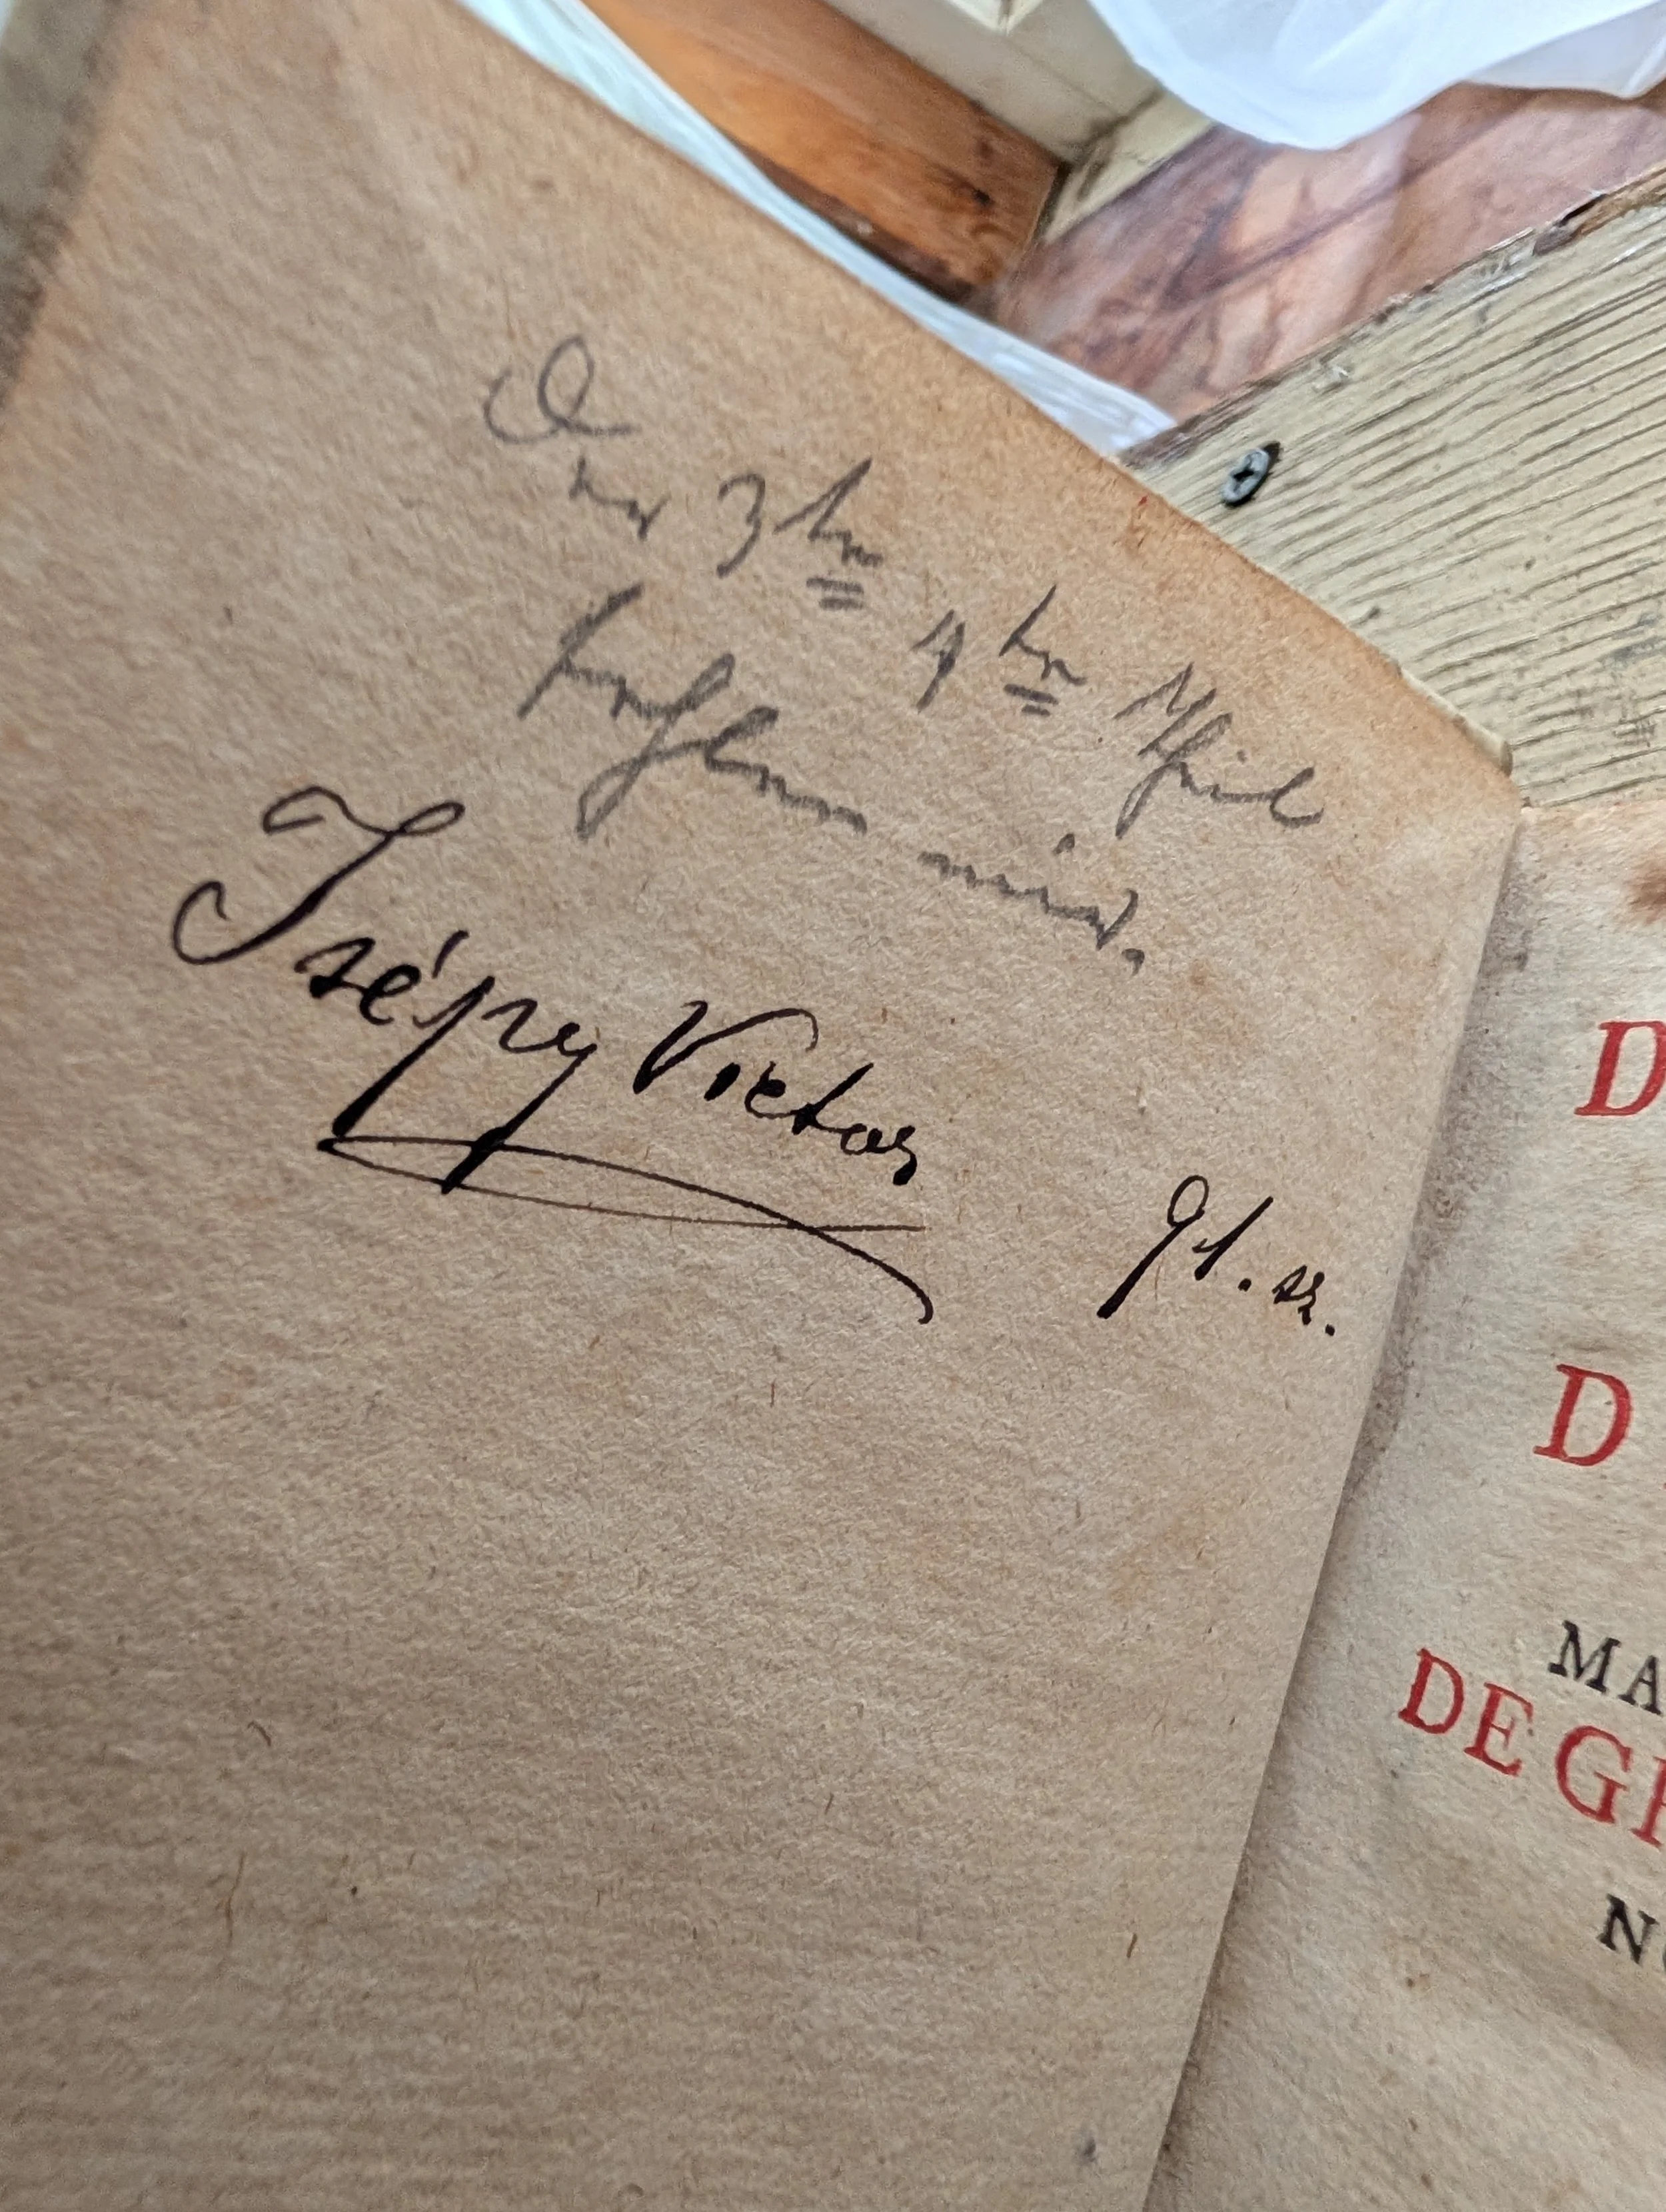 Der 3te 4te Theil
fehlen mir.
Isépy Victor
91. sz.
D
D
MA
DE GR
NO